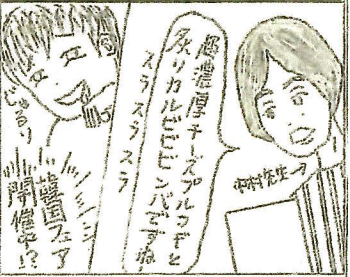 超濃厚チーズプルコギと
炙りカルビビビンバですね!
スラスラスラ
中村先生→
じゅるり
韓国フェア
開催!?